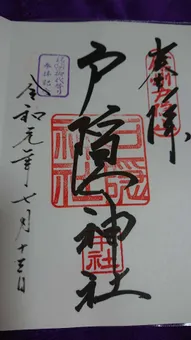 奉拝
戸隠神社
戸隠神社
中社
令和元年七月十三日